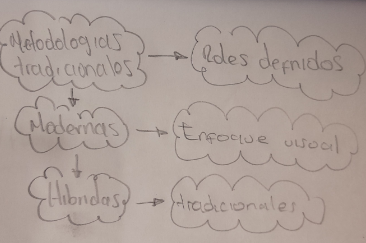 Metodologías
tradicionales
Roles definidos
Modernas
Enfoque visual
Híbridas
tradicionales